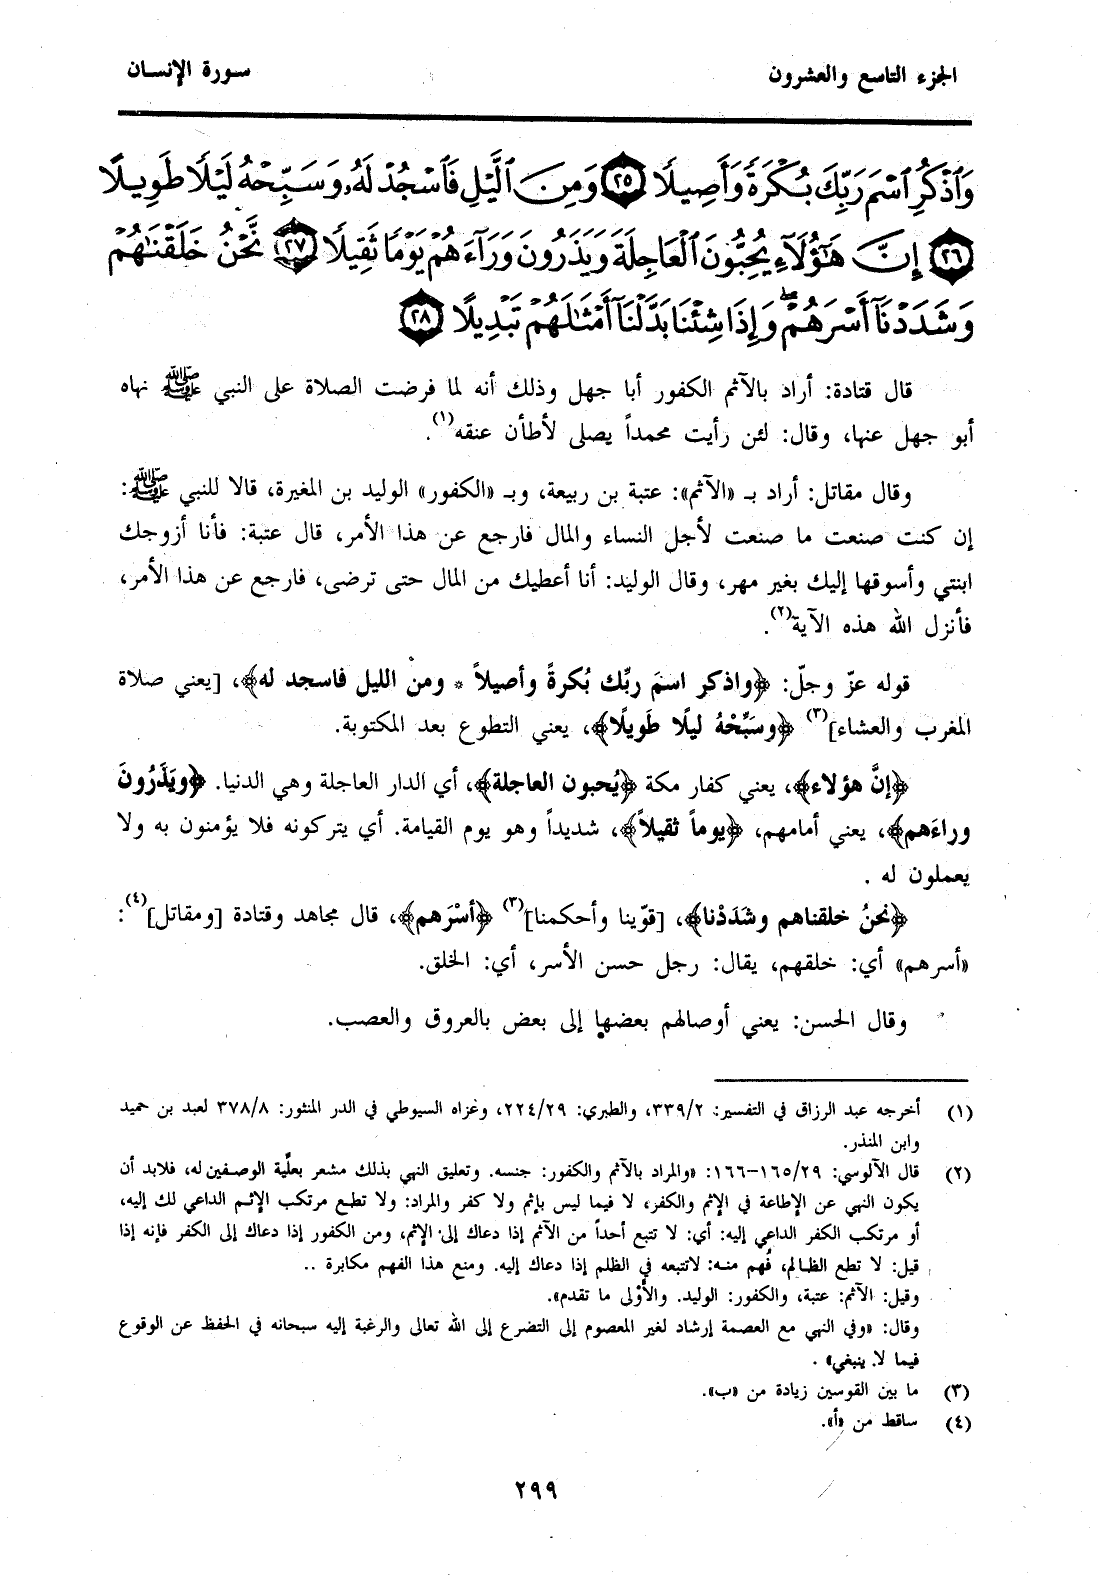 الجزء التاسع والعشرون
سورة الإنسان
وَٱذْكُرِ ٱسْمَ رَبِّكَ بُكْرَةً وَأَصِيلًا ۝٢٥ وَمِنَ ٱلَّيْلِ فَٱسْجُدْ لَهُۥ وَسَبِّحْهُ لَيْلًا طَوِيلًا
۝٢٦ إِنَّ هَٰٓؤُلَآءِ يُحِبُّونَ ٱلْعَاجِلَةَ وَيَذَرُونَ وَرَآءَهُمْ يَوْمًا ثَقِيلًا ۝٢٧ نَّحْنُ خَلَقْنَٰهُمْ
وَشَدَدْنَآ أَسْرَهُمْ ۖ وَإِذَا شِئْنَا بَدَّلْنَآ أَمْثَٰلَهُمْ تَبْدِيلًا ۝٢٨
قال قتادة: أراد بالآثم الكفور أبا جهل وذلك أنه لما فرضت الصلاة على النبي ﷺ نهاه
أبو جهل عنها، وقال: لئن رأيت محمداً يصلى لأطأن عنقه(١).
وقال مقاتل: أراد بـ «الآثم»: عتبة بن ربيعة، وبـ «الكفور» الوليد بن المغيرة، قالا للنبي ﷺ:
إن كنت صنعت ما صنعت لأجل النساء والمال فارجع عن هذا الأمر، قال عتبة: فأنا أزوجك
ابنتي وأسوقها إليك بغير مهر، وقال الوليد: أنا أعطيك من المال حتى ترضى، فارجع عن هذا الأمر،
فأنزل الله هذه الآية(٢).
قوله عزّ وجلّ: ﴿واذكر اسمَ ربِّك بُكرةً وأصيلاً * ومن الليل فاسجد له﴾، [يعني صلاة
المغرب والعشاء](٣) ﴿وسَبِّحْهُ ليلًا طَويلًا﴾، يعني التطوع بعد المكتوبة.
﴿إنَّ هؤلاء﴾، يعني كفار مكة ﴿يُحبون العاجلة﴾، أي الدار العاجلة وهي الدنيا. ﴿ويَذَرُونَ
وراءَهم﴾، يعني أمامهم، ﴿يوماً ثقيلاً﴾، شديداً وهو يوم القيامة. أي يتركونه فلا يؤمنون به ولا
يعملون له .
﴿نحنُ خلقناهم وشَدَدْنا﴾، [قوّينا وأحكمنا](٣) ﴿أسْرَهم﴾، قال مجاهد وقتادة [ومقاتل](٤):
«أسرهم» أي: خلقهم، يقال: رجل حسن الأسر، أي: الخلق.
وقال الحسن: يعني أوصالهم بعضها إلى بعض بالعروق والعصب.
(١) أخرجه عبد الرزاق في التفسير: ٣٣٩/٢، والطبري: ٢٢٤/٢٩، وعزاه السيوطي في الدر المنثور: ٣٧٨/٨ لعبد بن حميد
وابن المنذر.
(٢) قال الآلوسي: ١٦٥/٢٩-١٦٦: «والمراد بالآثم والكفور: جنسه. وتعليق النهي بذلك مشعر بعلِّية الوصفين له، فلابد أن
يكون النهي عن الإطاعة في الإثم والكفر، لا فيما ليس بإثم ولا كفر والمراد: ولا تطع مرتكب الإثم الداعي لك إليه،
أو مرتكب الكفر الداعي إليه: أي: لا تتبع أحداً من الآثم إذا دعاك إلى الإثم، ومن الكفور إذا دعاك إلى الكفر فإنه إذا
قيل: لا تطع الظالم، فُهم منه: لاتتبعه في الظلم إذا دعاك إليه. ومنع هذا الفهم مكابرة ..
وقيل: الآثم: عتبة، والكفور: الوليد. والأوْلى ما تقدم».
وقال: «وفي النهي مع العصمة إرشاد لغير المعصوم إلى التضرع إلى الله تعالى والرغبة إليه سبحانه في الحفظ عن الوقوع
فيما لا ينبغي» .
(٣) ما بين القوسين زيادة من «ب».
(٤) ساقط من «أ».
٢٩٩